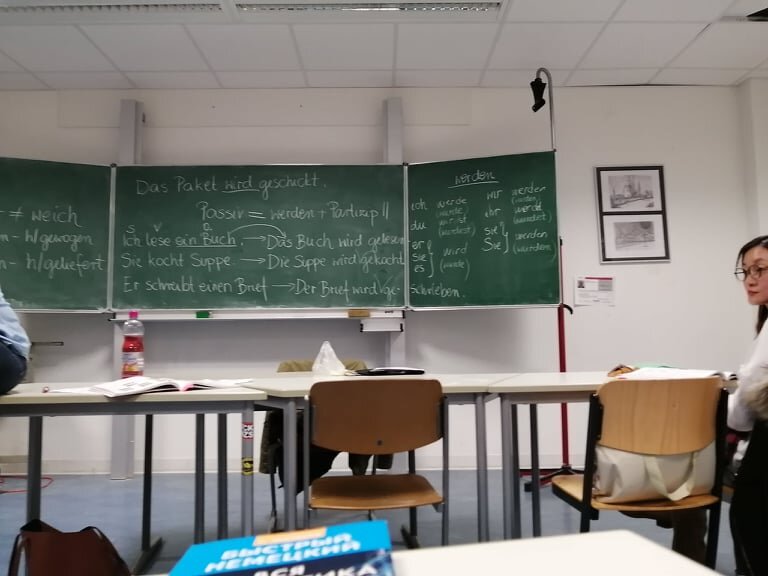 ≠ weich
n - h/gewogen
n - h/geliefert
Das Paket wird geschickt.
Passiv = werden + Partizip II
S V O
Ich lese ein Buch. → Das Buch wird gelesen
Sie kocht Suppe. → Die Suppe wird gekocht
Er schreibt einen Brief → Der Brief wird ge-
schrieben.
werden
ich werde
(wurde)
du wirst
(wurdest)
er
sie
es
wird
(wurde)
wir werden
(wurden)
ihr werdet
(wurdet)
sie
Sie
werden
(wurden)
БЫСТРЫЙ
НЕМЕЦКИЙ
ВСЯ